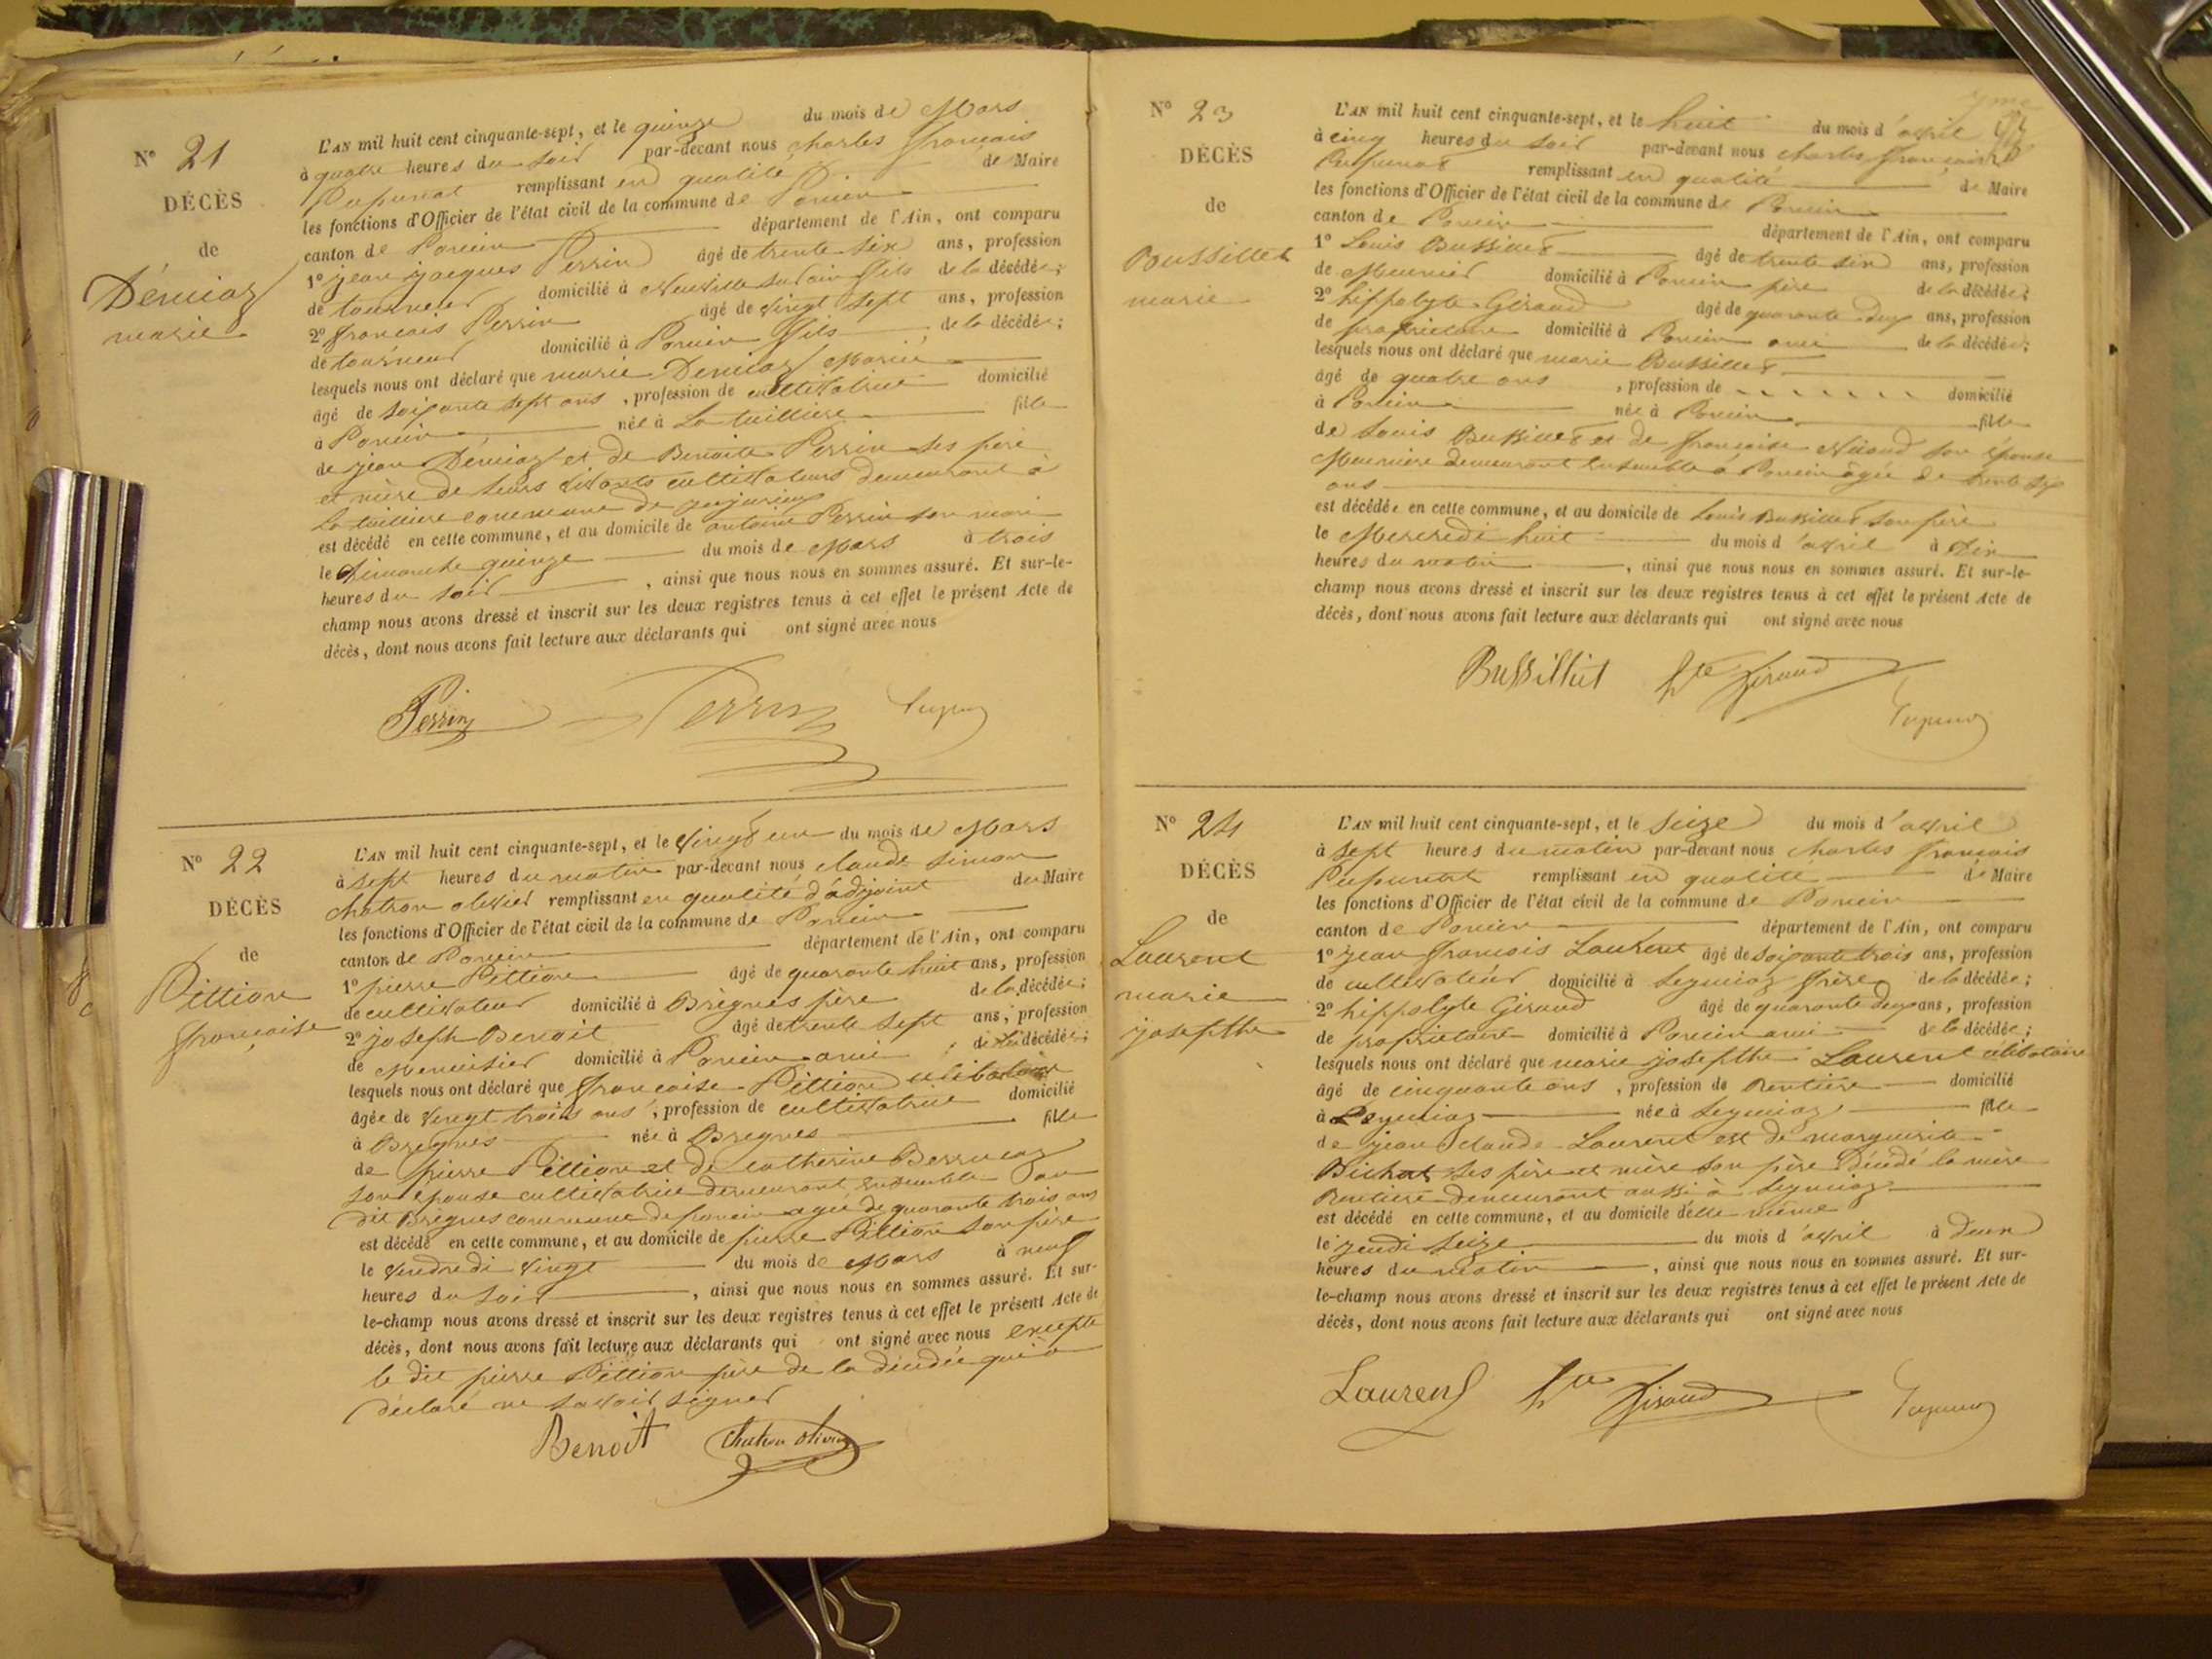 N° 21
DÉCÈS
de
Démiaz
marie
L'AN mil huit cent cinquante-sept, et le quinze du mois de Mars
à quatre heures du soir par-devant nous charles françois
Pupunat remplissant en qualité de Maire
les fonctions d'Officier de l'état civil de la commune de Poncin
canton de Poncin département de l'Ain, ont comparu
1° jean jacques Perrin âgé de trente six ans, profession
de tourneur domicilié à Neuville sur ain fils de la décédée;
2° françois Perrin âgé de vingt sept ans, profession
de tourneur domicilié à Poncin fils de la décédée;
lesquels nous ont déclaré que marie Demiaz Mariée
âgé de soixante sept ans, profession de cultivatrice domicilié
à Poncin née à La tuillière fille
de jean Démiaz et de Benoite Perrin ses père
et mère de leurs vivants cultivateurs demeurant à
La tuilliere commune de jujurieux
est décédé en cette commune, et au domicile de antoine Perrin son mari
le Dimanche quinze du mois de Mars à trois
heures du soir, ainsi que nous nous en sommes assuré. Et sur-le-
champ nous avons dressé et inscrit sur les deux registres tenus à cet effet le présent Acte de
décès, dont nous avons fait lecture aux déclarants qui ont signé avec nous
Perrin Perrin Pupunat
N° 22
DÉCÈS
de
Pittion
françoise
L'AN mil huit cent cinquante-sept, et le vingt un du mois de Mars
à sept heures du matin par-devant nous claude simon
chatron olivier remplissant en qualité d'adjoint du Maire
les fonctions d'Officier de l'état civil de la commune de Poncin
canton de Poncin département de l'Ain, ont comparu
1° pierre Pittion âgé de quarante huit ans, profession
de cultivateur domicilié à Brègnes père de la décédée;
2° joseph Benoit âgé de trente sept ans, profession
de Menuisier domicilié à Poncin ami de la décédée;
lesquels nous ont déclaré que françoise Pittion célibataire
âgée de vingt trois ans, profession de cultivatrice domicilié
à Bregnes née à Bregnes fille
de pierre Pittion et de catherine
son épouse cultivatrice demeurant ensemble au
dit Brègnes commune de poncin agée de quarante trois ans
est décédé en cette commune, et au domicile de pierre Pittion son père
le vendredi vingt du mois de Mars à neuf
heures du soir, ainsi que nous nous en sommes assuré. Et sur-
le-champ nous avons dressé et inscrit sur les deux registres tenus à cet effet le présent Acte de
décès, dont nous avons fait lecture aux déclarants qui ont signé avec nous excepté
le dit pierre Pittion père de la décédée qui a
déclaré ne savoir signer
Benoit Chatron olivier
N° 23
DÉCÈS
de
Bussillet
marie
L'AN mil huit cent cinquante-sept, et le huit du mois d'avril
à cinq heures du soir par-devant nous charles françois
Pupunat remplissant en qualité de Maire
les fonctions d'Officier de l'état civil de la commune de Poncin
canton de Poncin département de l'Ain, ont comparu
1° Louis Bussillet âgé de trente six ans, profession
de Meunier domicilié à Poncin père de la décédée;
2° hippolyte Giraud âgé de quarante deux ans, profession
de propriétaire domicilié à Poncin ami de la décédée;
lesquels nous ont déclaré que marie Bussillet
âgé de quatre ans, profession de domicilié
à Poncin née à Poncin fille
de Louis Bussillet et de françoise son épouse
Meunière demeurant ensemble à Poncin âgée de trente six
ans
est décédée en cette commune, et au domicile de Louis Bussillet son père
le Mercredi huit du mois d'avril à dix
heures du matin, ainsi que nous nous en sommes assuré. Et sur-le-
champ nous avons dressé et inscrit sur les deux registres tenus à cet effet le présent Acte de
décès, dont nous avons fait lecture aux déclarants qui ont signé avec nous
Bussillet hte Giraud Pupunat
N° 24
DÉCÈS
de
Laurent
marie
josepthe
L'AN mil huit cent cinquante-sept, et le seize du mois d'avril
à sept heures du matin par-devant nous charles françois
Pupunat remplissant en qualité de Maire
les fonctions d'Officier de l'état civil de la commune de Poncin
canton de Poncin département de l'Ain, ont comparu
1° jean françois Laurent âgé de soixante trois ans, profession
de cultivateur domicilié à Leymiaz frère de la décédée;
2° hippolyte Giraud âgé de quarante deux ans, profession
de propriétaire domicilié à Poncin ami de la décédée;
lesquels nous ont déclaré que marie josepthe Laurent célibataire
âgé de cinquante ans, profession de Rentière domicilié
à Leymiaz née à Leymiaz fille
de jean claude Laurent et de marguerite
Bichat ses père et mère son père décédé la mère
Rentière demeurant aussi à Leymiaz
est décédé en cette commune, et au domicile d'elle même
le jeudi seize du mois d'avril à deux
heures du matin, ainsi que nous nous en sommes assuré. Et sur-
le-champ nous avons dressé et inscrit sur les deux registres tenus à cet effet le présent Acte de
décès, dont nous avons fait lecture aux déclarants qui ont signé avec nous
Laurent hte Giraud Pupunat